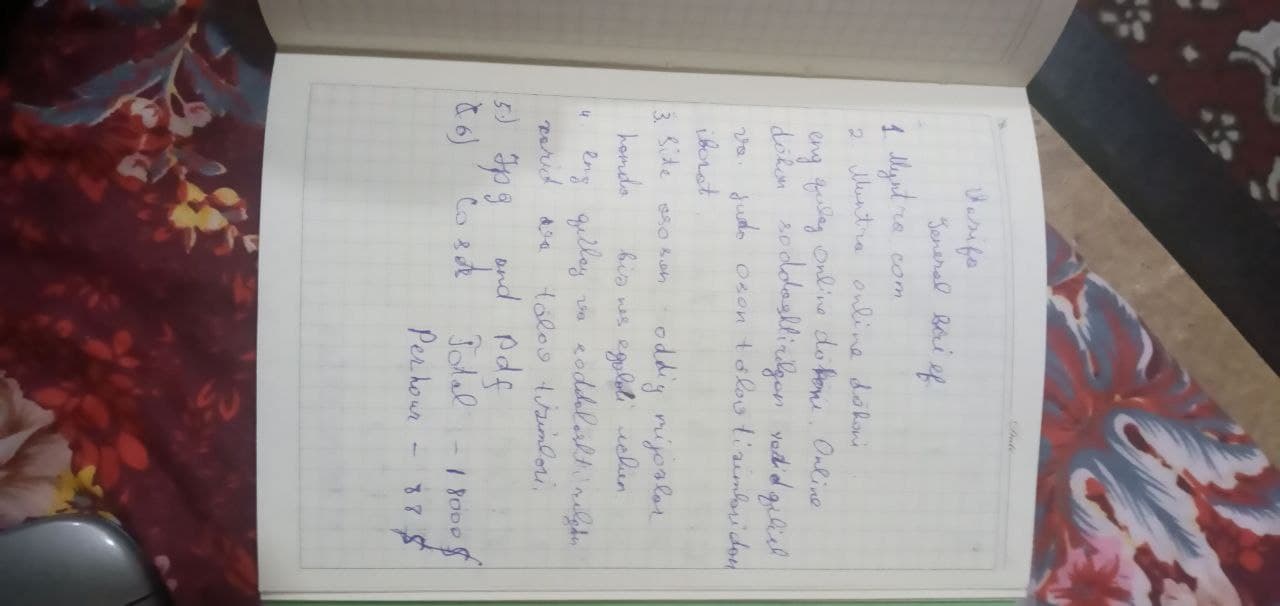 Vazifa
General brief
1 Myntra com
2 Muntra online dõkoni
eng qulay online dõkoni. Online
dõkon soddalashtirilgan xarid qilish
va juda oson tõlov tizimlaridan
iborat.
3. Site asosan oddiy mijozlar
hamda biznes egalari uchun
4. eng qulay va soddalashtirilgan
xarid va tõlov tizimlari.
5.) Jpg and pdf
6) Cost Total - 18000 $
Per hour - 88 $